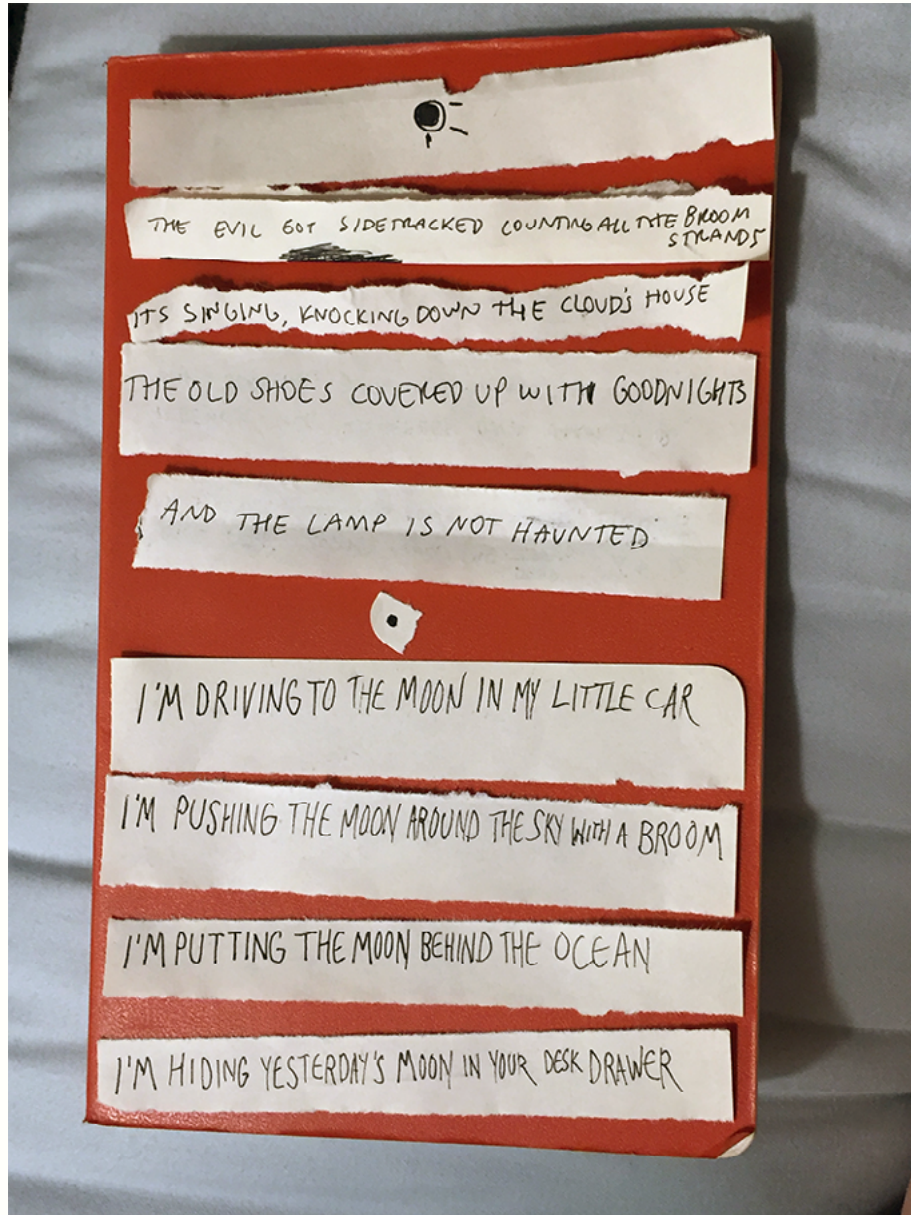 THE EVIL GOT SIDETRACKED COUNTING ALL THE BROOM
STRANDS
ITS SINGING, KNOCKING DOWN THE CLOUD'S HOUSE
THE OLD SHOES COVERED UP WITH GOODNIGHTS
AND THE LAMP IS NOT HAUNTED
I'M DRIVING TO THE MOON IN MY LITTLE CAR
I'M PUSHING THE MOON AROUND THE SKY WITH A BROOM
I'M PUTTING THE MOON BEHIND THE OCEAN
I'M HIDING YESTERDAY'S MOON IN YOUR DESK DRAWER